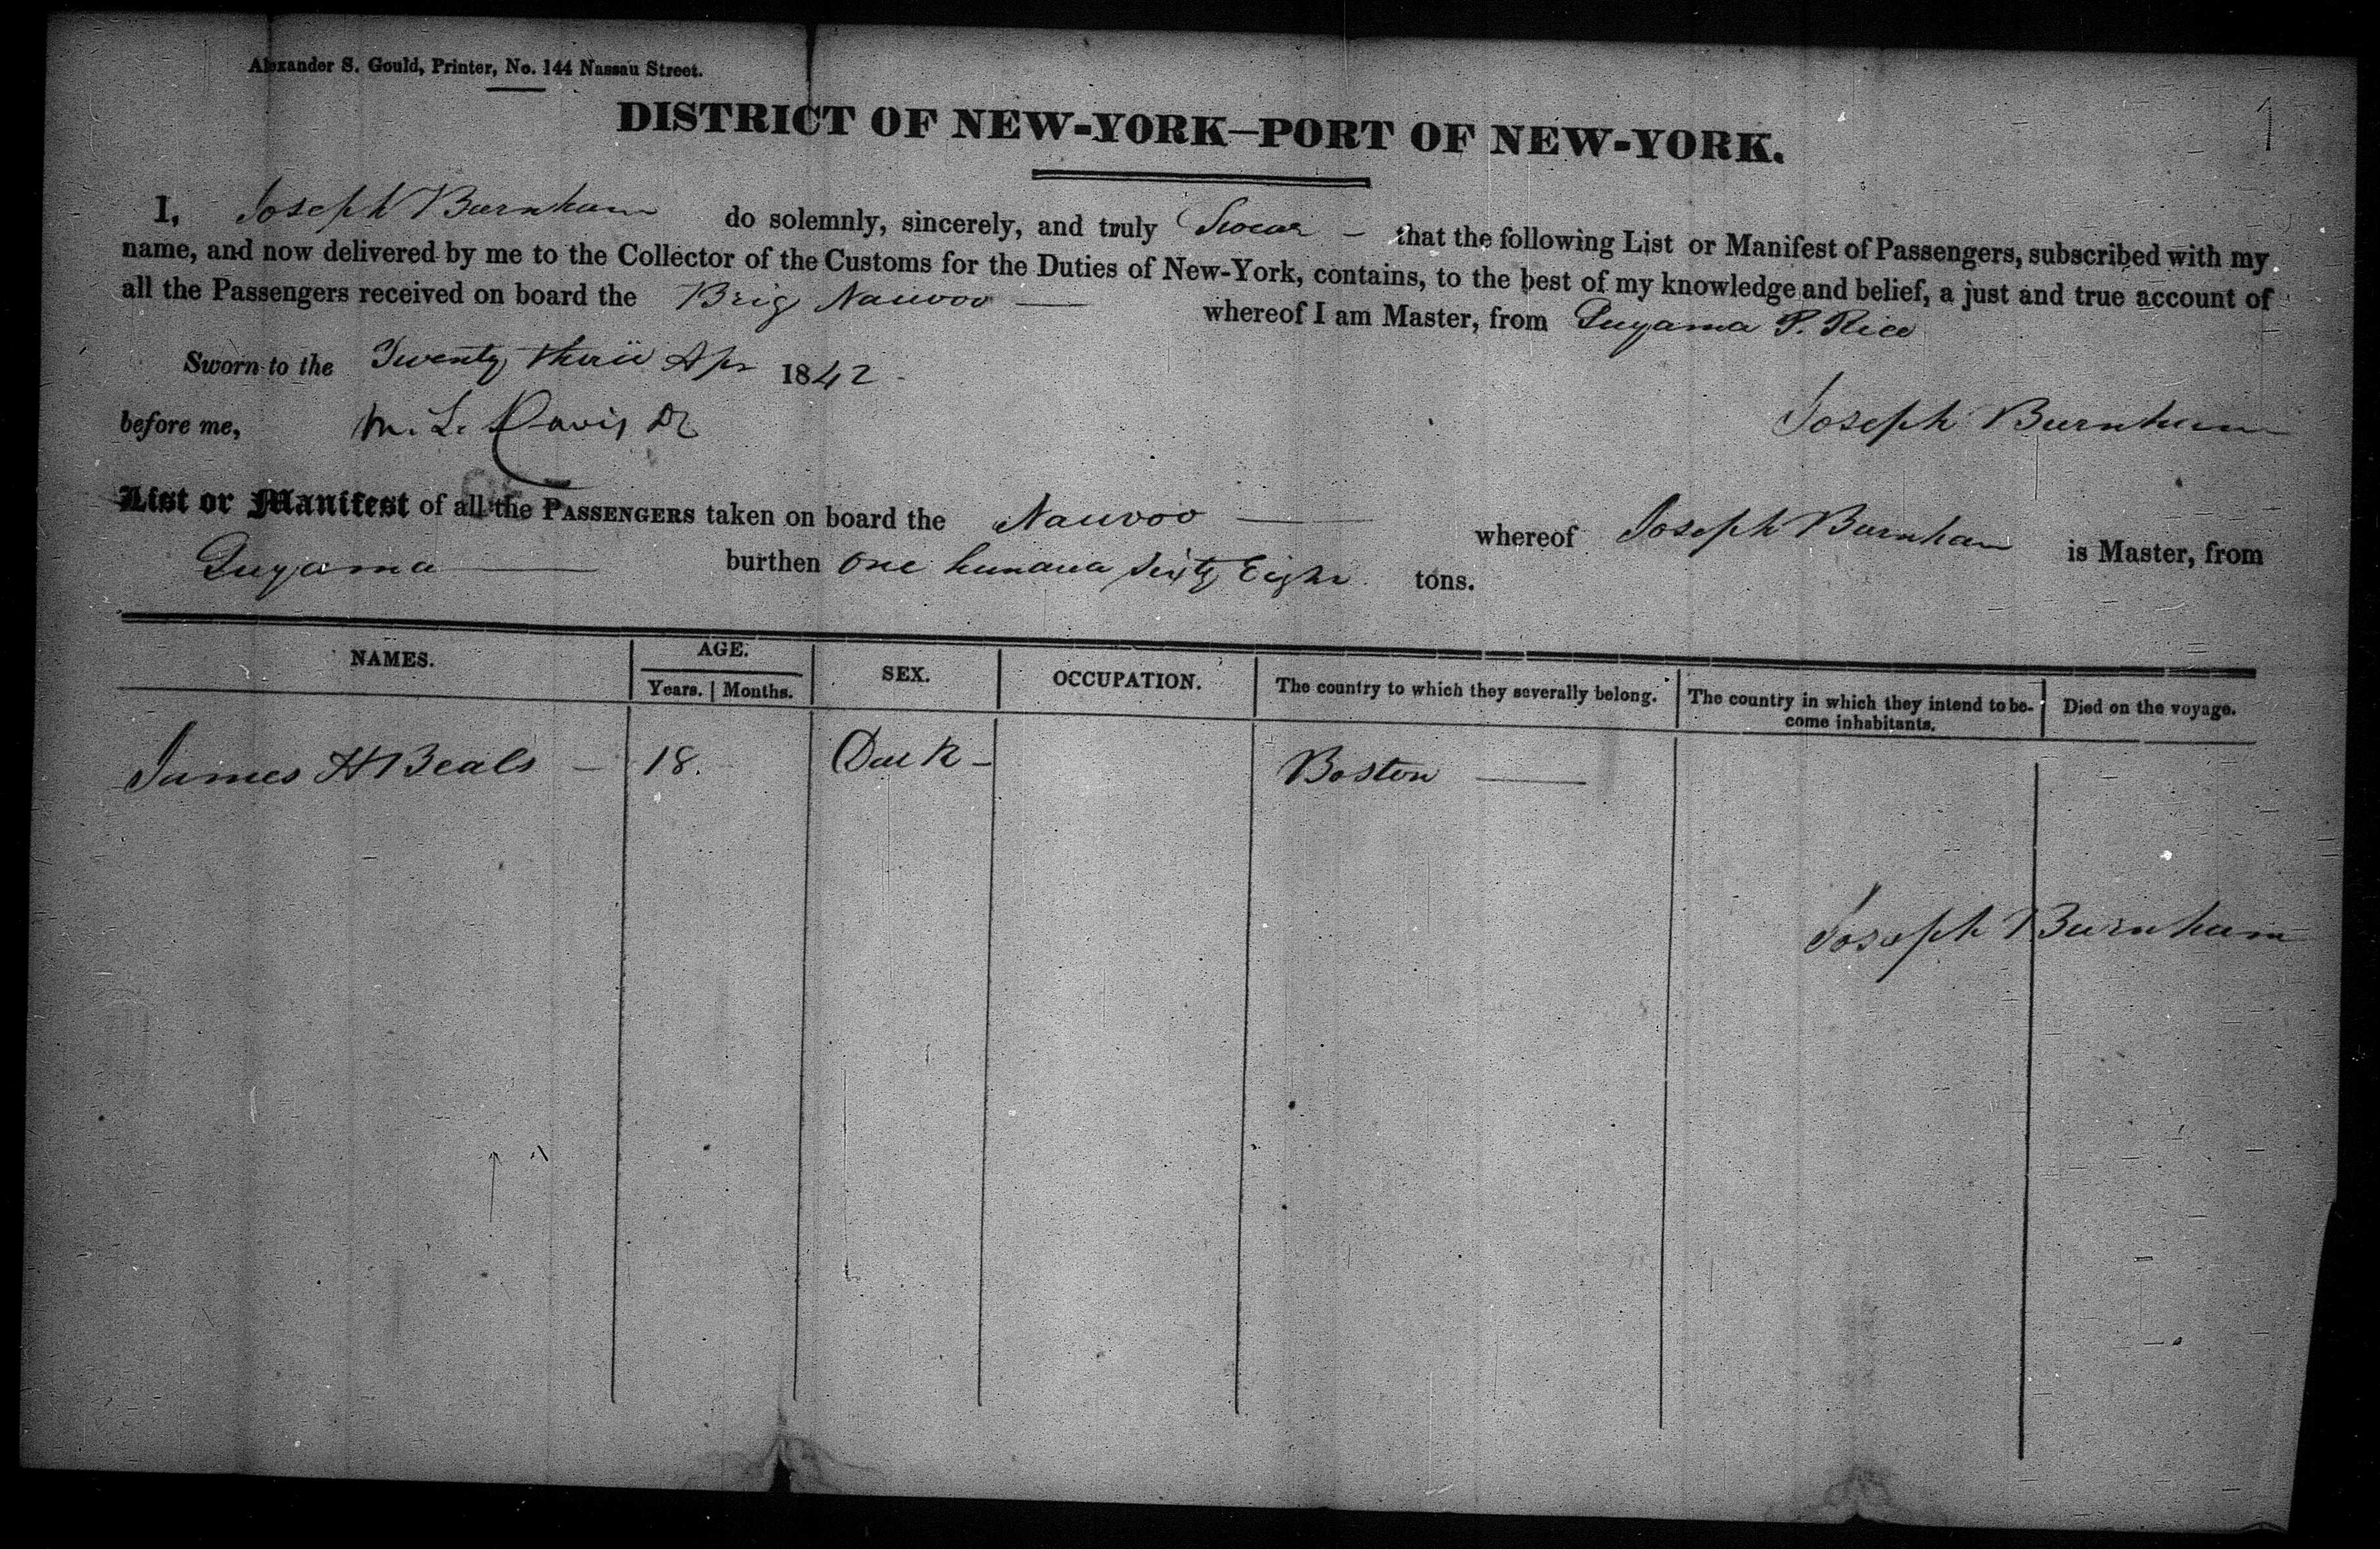 Alexander S. Gould, Printer, No. 144 Nassau Street.
1
DISTRICT OF NEW-YORK—PORT OF NEW-YORK.
I, Joseph Burnham do solemnly, sincerely, and truly Swear – that the following List or Manifest of Passengers, subscribed with my
name, and now delivered by me to the Collector of the Customs for the Duties of New-York, contains, to the best of my knowledge and belief, a just and true account of
all the Passengers received on board the Brig Nauvoo — whereof I am Master, from Guyama P. Rico
Sworn to the Twenty three Apr 1842
before me, M. L. Davis
Joseph Burnham
List or Manifest of all the PASSENGERS taken on board the Nauvoo — whereof Joseph Burnham is Master, from
Guyama — burthen One hundred Sixty Eight tons.
NAMES. AGE. SEX. OCCUPATION. The country to which they severally belong. The country in which they intend to be-come inhabitants. Died on the voyage.
Years. | Months.
James H Beals – 18. Dark – Boston —
Joseph Burnham